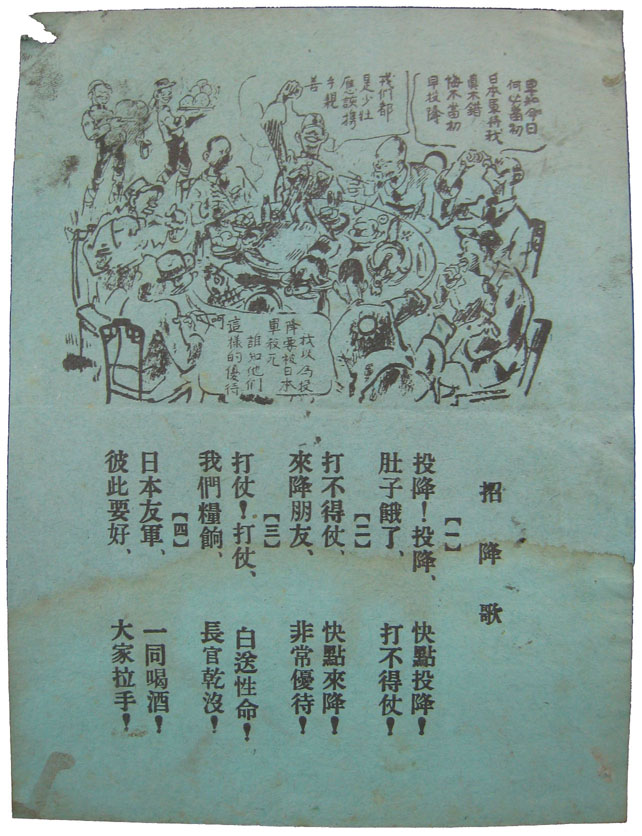 早知今日
何必當初
日本軍待我
眞不錯
悔不當初
早投降
我們都
是少壯
應該携
手親
善
我以為投
降要被日本
軍殺死
誰知他們
這樣的優待
招降歌
【一】
投降！投降、快點投降！
肚子餓了、打不得仗！
【二】
打不得仗、快點來降！
來降朋友、非常優待！
【三】
打仗！打仗、白送性命！
我們糧餉、長官乾沒！
【四】
日本友軍、一同喝酒！
彼此要好、大家拉手！